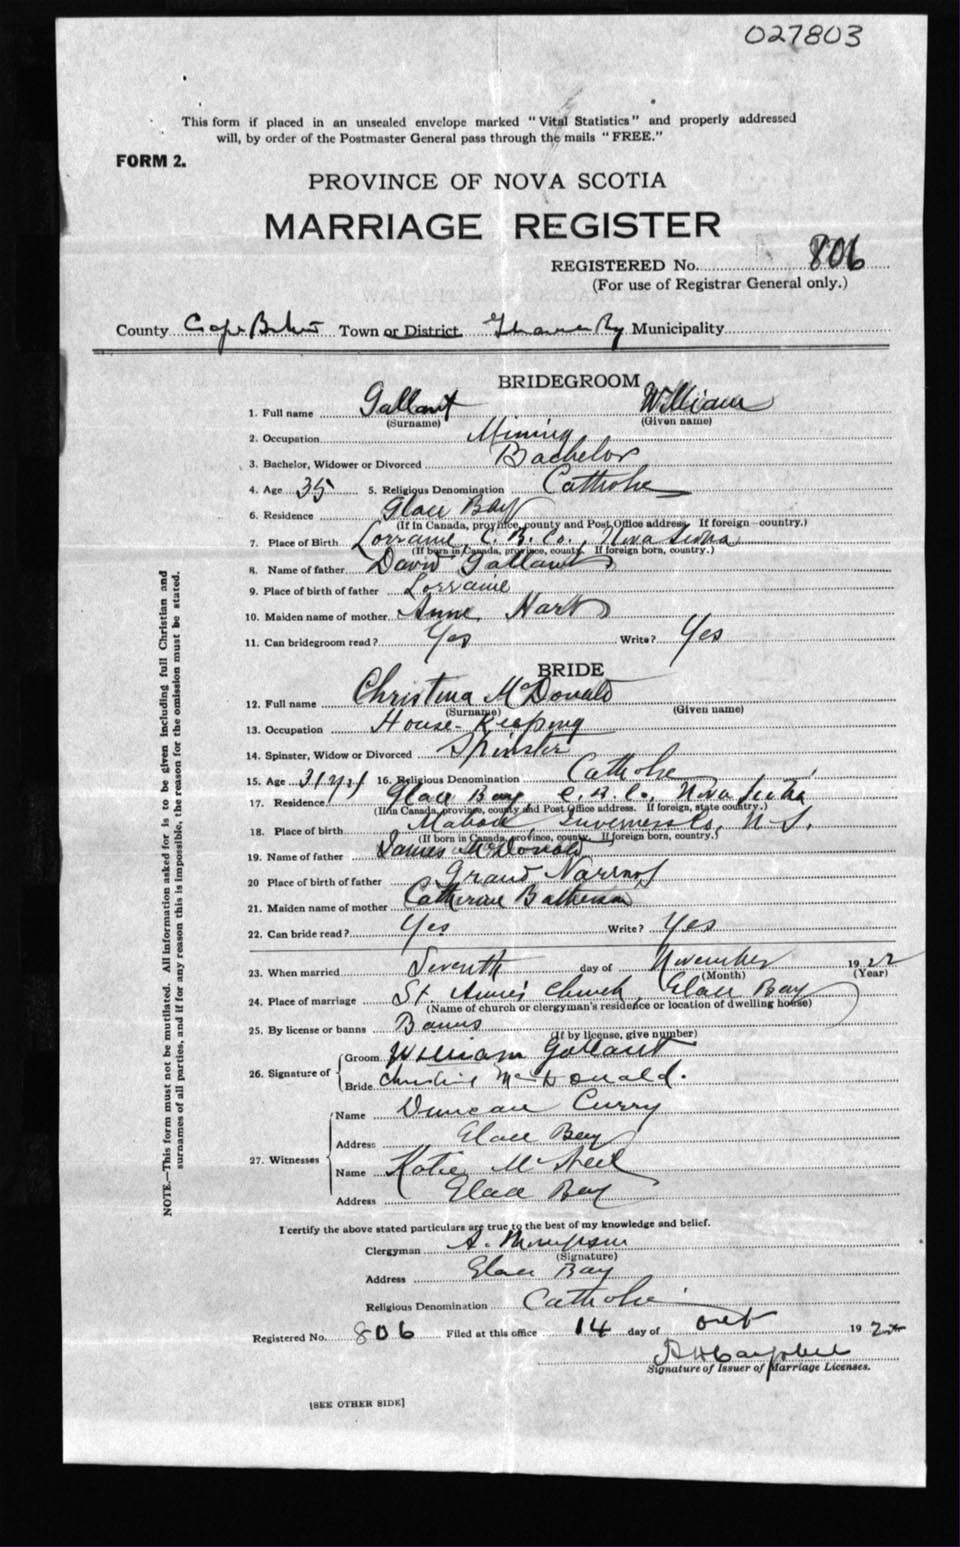 027803
This form if placed in an unsealed envelope marked "Vital Statistics" and properly addressed
will, by order of the Postmaster General pass through the mails "FREE."
FORM 2.
PROVINCE OF NOVA SCOTIA
MARRIAGE REGISTER
REGISTERED No. 806
(For use of Registrar General only.)
County Cape Breton Town or District Municipality
BRIDEGROOM
1. Full name Gallant William
(Surname) (Given name)
2. Occupation Mining
3. Bachelor, Widower or Divorced Bachelor
4. Age 35 5. Religious Denomination Catholic
6. Residence Glace Bay
(If in Canada, province, county and Post Office address. If foreign—country.)
7. Place of Birth Lorraine C. B. Co. Nova Scotia
(If born in Canada, province, county. If foreign born, country.)
8. Name of father David Gallant
9. Place of birth of father Lorraine
10. Maiden name of mother Anne
11. Can bridegroom read? Yes Write? Yes
BRIDE
12. Full name Christina McDonald
(Surname) (Given name)
13. Occupation House-Keeping
14. Spinster, Widow or Divorced Spinster
15. Age 31 yrs 16. Religious Denomination Catholic
17. Residence Glace Bay, C. B. Co., Nova Scotia
(If in Canada, province, county and Post Office address. If foreign, state country.)
18. Place of birth Mabou Inverness Co, N. S.
(If born in Canada, province, county. If foreign born, country.)
19. Name of father James McDonald
20 Place of birth of father Grand Narrows
21. Maiden name of mother Catherine
22. Can bride read? Yes Write? Yes
23. When married Seventh day of November 1922
(Month) (Year)
24. Place of marriage St. Anne's Church, Glace Bay
(Name of church or clergyman's residence or location of dwelling house)
25. By license or banns Banns
(If by license, give number)
26. Signature of
Groom William Gallant
Bride Christine MacDonald.
27. Witnesses
Name Duncan Curry
Address Glace Bay
Name Katie McNeil
Address Glace Bay
I certify the above stated particulars are true to the best of my knowledge and belief.
Clergyman A. Thompson
(Signature)
Address Glace Bay
Religious Denomination Catholic
Registered No. 806 Filed at this office 14 day of 192
Signature of Issuer of Marriage Licenses.
[SEE OTHER SIDE]
NOTE.—This form must not be mutilated. All information asked for is to be given including full Christian and
surnames of all parties, and if for any reason this is impossible, the reason for the omission must be stated.